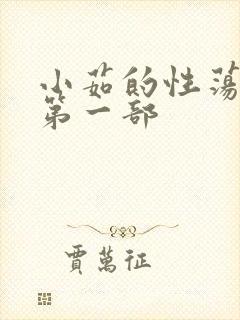 小茹的性荡
第一部
賈萬征